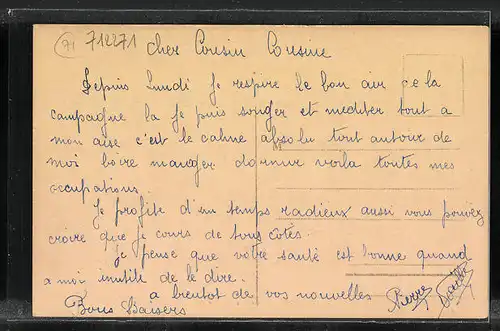 71 712271
Cher Cousin Cousine
Depuis Lundi je respire le bon air de la
campagne la je puis songer et mediter tout a
mon aise c'est le calme absolu tout autour de
moi boire manger dormir voila toutes mes
occupations
Je profite d'un temps radieux aussi vous pouvez
croire que je cours de tous côtes.
Je pense que votre santé est bonne quand
a moi inutile de le dire.
a bientot de vos nouvelles
Bons Baisers
Pierre